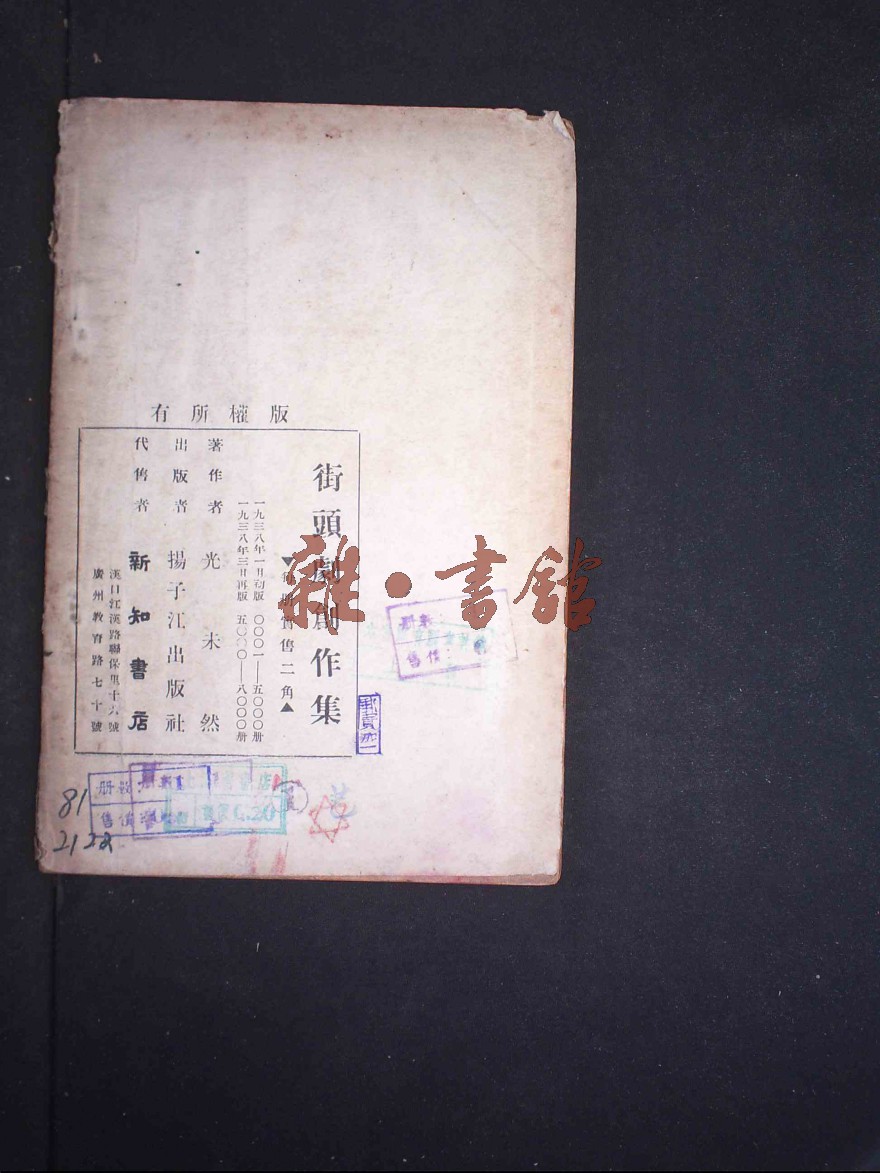 版權所有
街頭劇創作集
▼每册售二角▲
一九三八年一月初版 〇〇〇一—五〇〇〇册
一九三八年三月再版 五〇〇〇—八〇〇〇册
著作者 光未然
出版者 揚子江出版社
代售者 新知書店
漢口江漢路聯保里十六號
廣州教育路七十號
雜·書館
册數:
售價:
册數
售價
0.20
81
2122